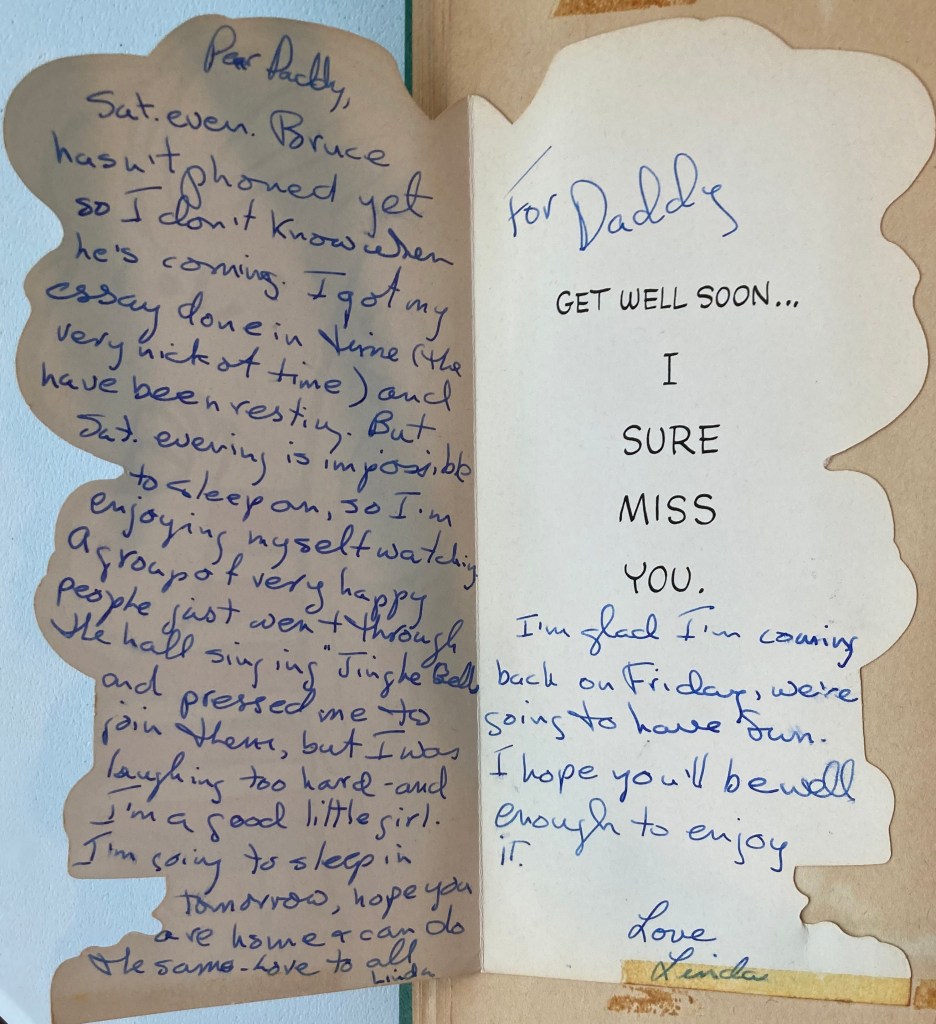 Dear Daddy,
Sat. even. Bruce
hasn't phoned yet
so I don't know when
he's coming. I got my
essay done in time (the
very nick of time) and
have been resting. But
Sat. evening is impossible
to sleep on, so I'm
enjoying myself watching
A group of very happy
people just went through
the hall singing "Jingle Bells
and pressed me to
join them, but I was
laughing too hard - and
I'm a good little girl.
I'm going to sleep in
tomorrow, hope you
are home & can do
the same - Love to all
Linda
For Daddy
GET WELL SOON...
I
SURE
MISS
YOU.
I'm glad I'm coming
back on Friday, we're
going to have fun.
I hope you'll be well
enough to enjoy
it.
Love
Linda